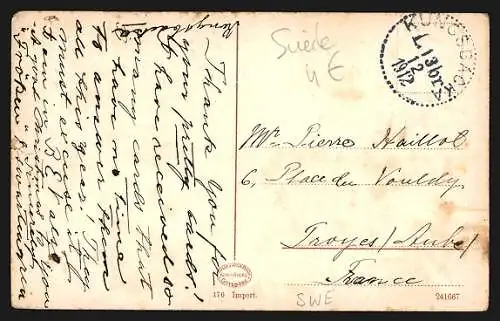 Kungsbacka
Thank you for
your pretty cards!
I have received so
many cards that
I have no time
to answer them
all this year. They
must excuse it
I am in BEP also
A good Christmas to you
Suède
4 E
KUNGSBACKA
L.13br.
12
1912
Mr. Pierre Haillot
6, Place du Vouldy
Troyes (Aube)
France
SWE
176 Import.
241667